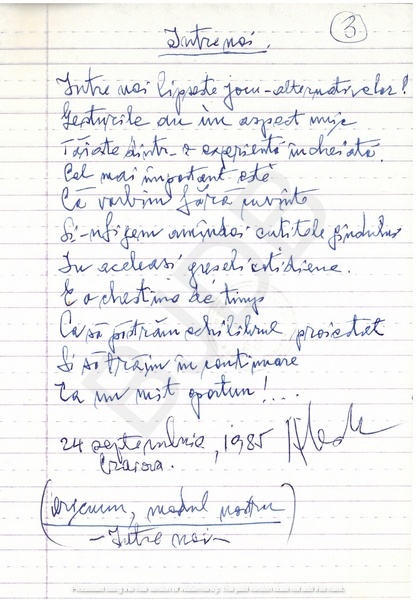 3
Între noi.
Între noi lipsește jocu-alternativelor!
Gesturile au un aspect
Tăiate dintr-o experiență încheiată.
Cel mai important este
Că vorbim fără cuvinte
Și-nfigem amîndoi cuțitele gîndului
În aceleași greșeli cotidiene.
E o chestiune de timp
Ca să păstrăm echilibrul proiectat
Și să trăim în continuare
Ca un mit oportun!...
24 septembrie, 1985
Craiova.
modul nostru
- Între noi -
BJDB